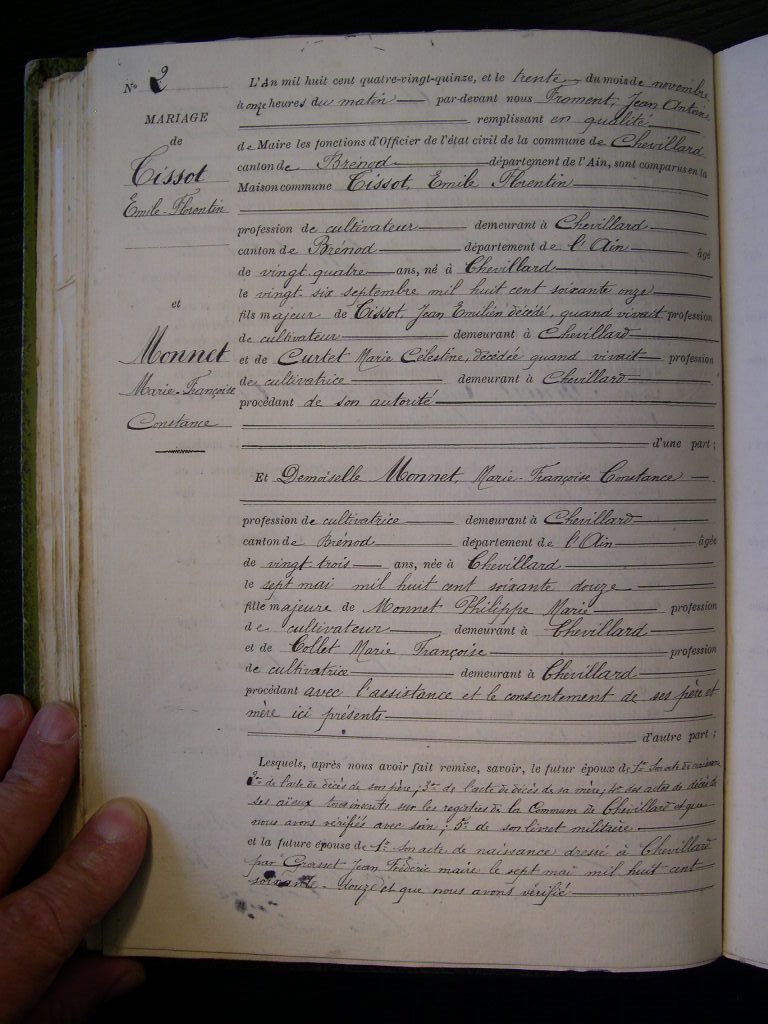 N° 2
MARIAGE
de
Tissot
Emile-Florentin
et
Monnet
Marie-Françoise
Constance
L'An mil huit cent quatre-vingt-quinze, et le trente du mois de novembre
à onze heures du matin par-devant nous Froment, Jean Antoine
remplissant en qualité
de Maire les fonctions d'Officier de l'état civil de la commune de Chevillard
canton de Brénod département de l'Ain, sont comparus en la
Maison commune Tissot, Emile Florentin
profession de cultivateur demeurant à Chevillard
canton de Brénod département de l'Ain âgé
de vingt-quatre ans, né à Chevillard
le vingt-six septembre mil huit cent soixante onze
fils majeur de Tissot Jean Emilien décédé, quand vivait profession
de cultivateur demeurant à Chevillard
et de Curtet Marie Célestine, décédée quand vivait profession
de cultivatrice demeurant à Chevillard
procédant de son autorité
d'une part ;
Et Demoiselle Monnet, Marie-Françoise Constance
profession de cultivatrice demeurant à Chevillard
canton de Brénod département de l'Ain âgée
de vingt-trois ans, née à Chevillard
le sept mai mil huit cent soixante douze
fille majeure de Monnet Philippe Marie profession
de cultivateur demeurant à Chevillard
et de Collet Marie Françoise profession
de cultivatrice demeurant à Chevillard
procédant avec l'assistance et le consentement de ses père et
mère ici présents
d'autre part ;
Lesquels, après nous avoir fait remise, savoir, le futur époux de 1° Son acte de naissance
2° de l'acte de décès de son père ; 3° de l'acte de décès de sa mère ; 4° des actes de décès de
ses aïeux tous inscrits sur les registres de la Commune de Chevillard et que
nous avons vérifiés avec soin ; 5° de son livret militaire
et la future épouse de 1° Son acte de naissance dressé à Chevillard
par Grosset Jean Frédéric maire le sept mai mil huit cent
soixante-douze et que nous avons vérifié